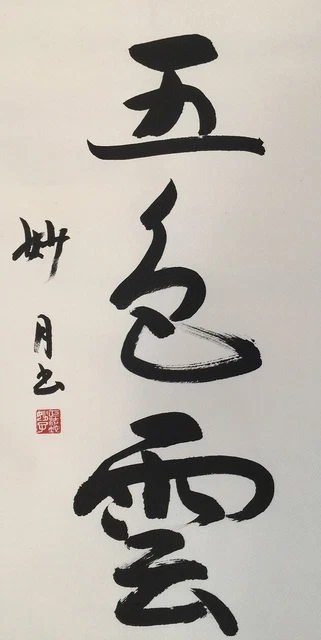 五色雲
妙月书